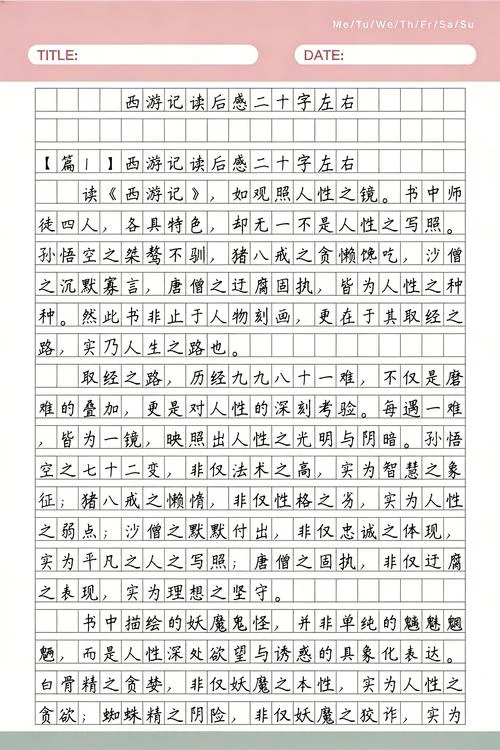 Me/Tu/We/Th/Fr/Sa/Su
TITLE:
DATE:
西游记读后感二十字左右
【篇1】西游记读后感二十字左右
读《西游记》，如观照人性之镜。书中师
徒四人，各具特色，却无一不是人性之写照。
孙悟空之桀骜不驯，猪八戒之贪懒馋吃，沙僧
之沉默寡言，唐僧之迂腐固执，皆为人性之种
种。然此书非止于人物刻画，更在于其取经之
路，实乃人生之路也。
取经之路，历经九九八十一难，不仅是磨
难的叠加，更是对人性的深刻考验。每遇一难
，皆为一镜，映照出人性之光明与阴暗。孙悟
空之七十二变，非仅法术之高，实为智慧之象
征；猪八戒之懒惰，非仅性格之劣，实为人性
之弱点；沙僧之默默付出，非仅忠诚之体现，
实为平凡之人之写照；唐僧之固执，非仅迂腐
之表现，实为理想之坚守。
书中描绘的妖魔鬼怪，并非单纯的魑魅魍
魉，而是人性深处欲望与诱惑的具象化表达。
白骨精之贪婪，非仅妖魔之本性，实为人性之
贪欲；蜘蛛精之阴险，非仅妖魔之狡诈，实为